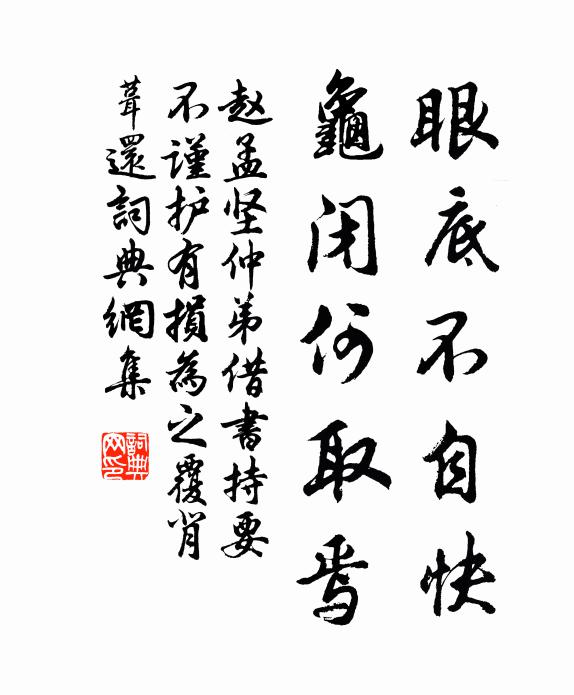 眼底不自快
龜閉何取焉
赵孟坚仲弟借書持要
不谨护有損為之覆背
葺還詞典網集
詞典网印